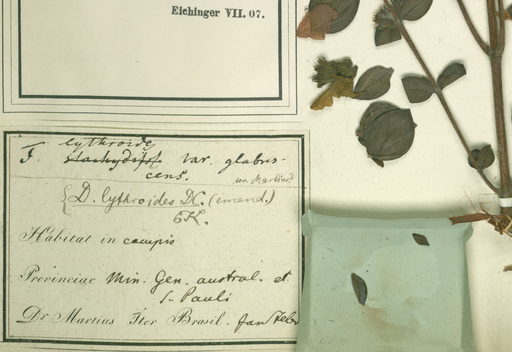 Eichinger VII. 07.
lythroides
F. stachydif. var. glabres-
cens. ser. Martius?
D. lythroides DC. (emend.)
EK.
Habitat in campis
Provinciae Min. Gen. austral. et
S. Pauli
Dr. Martius Iter Brasil. Jan Febr